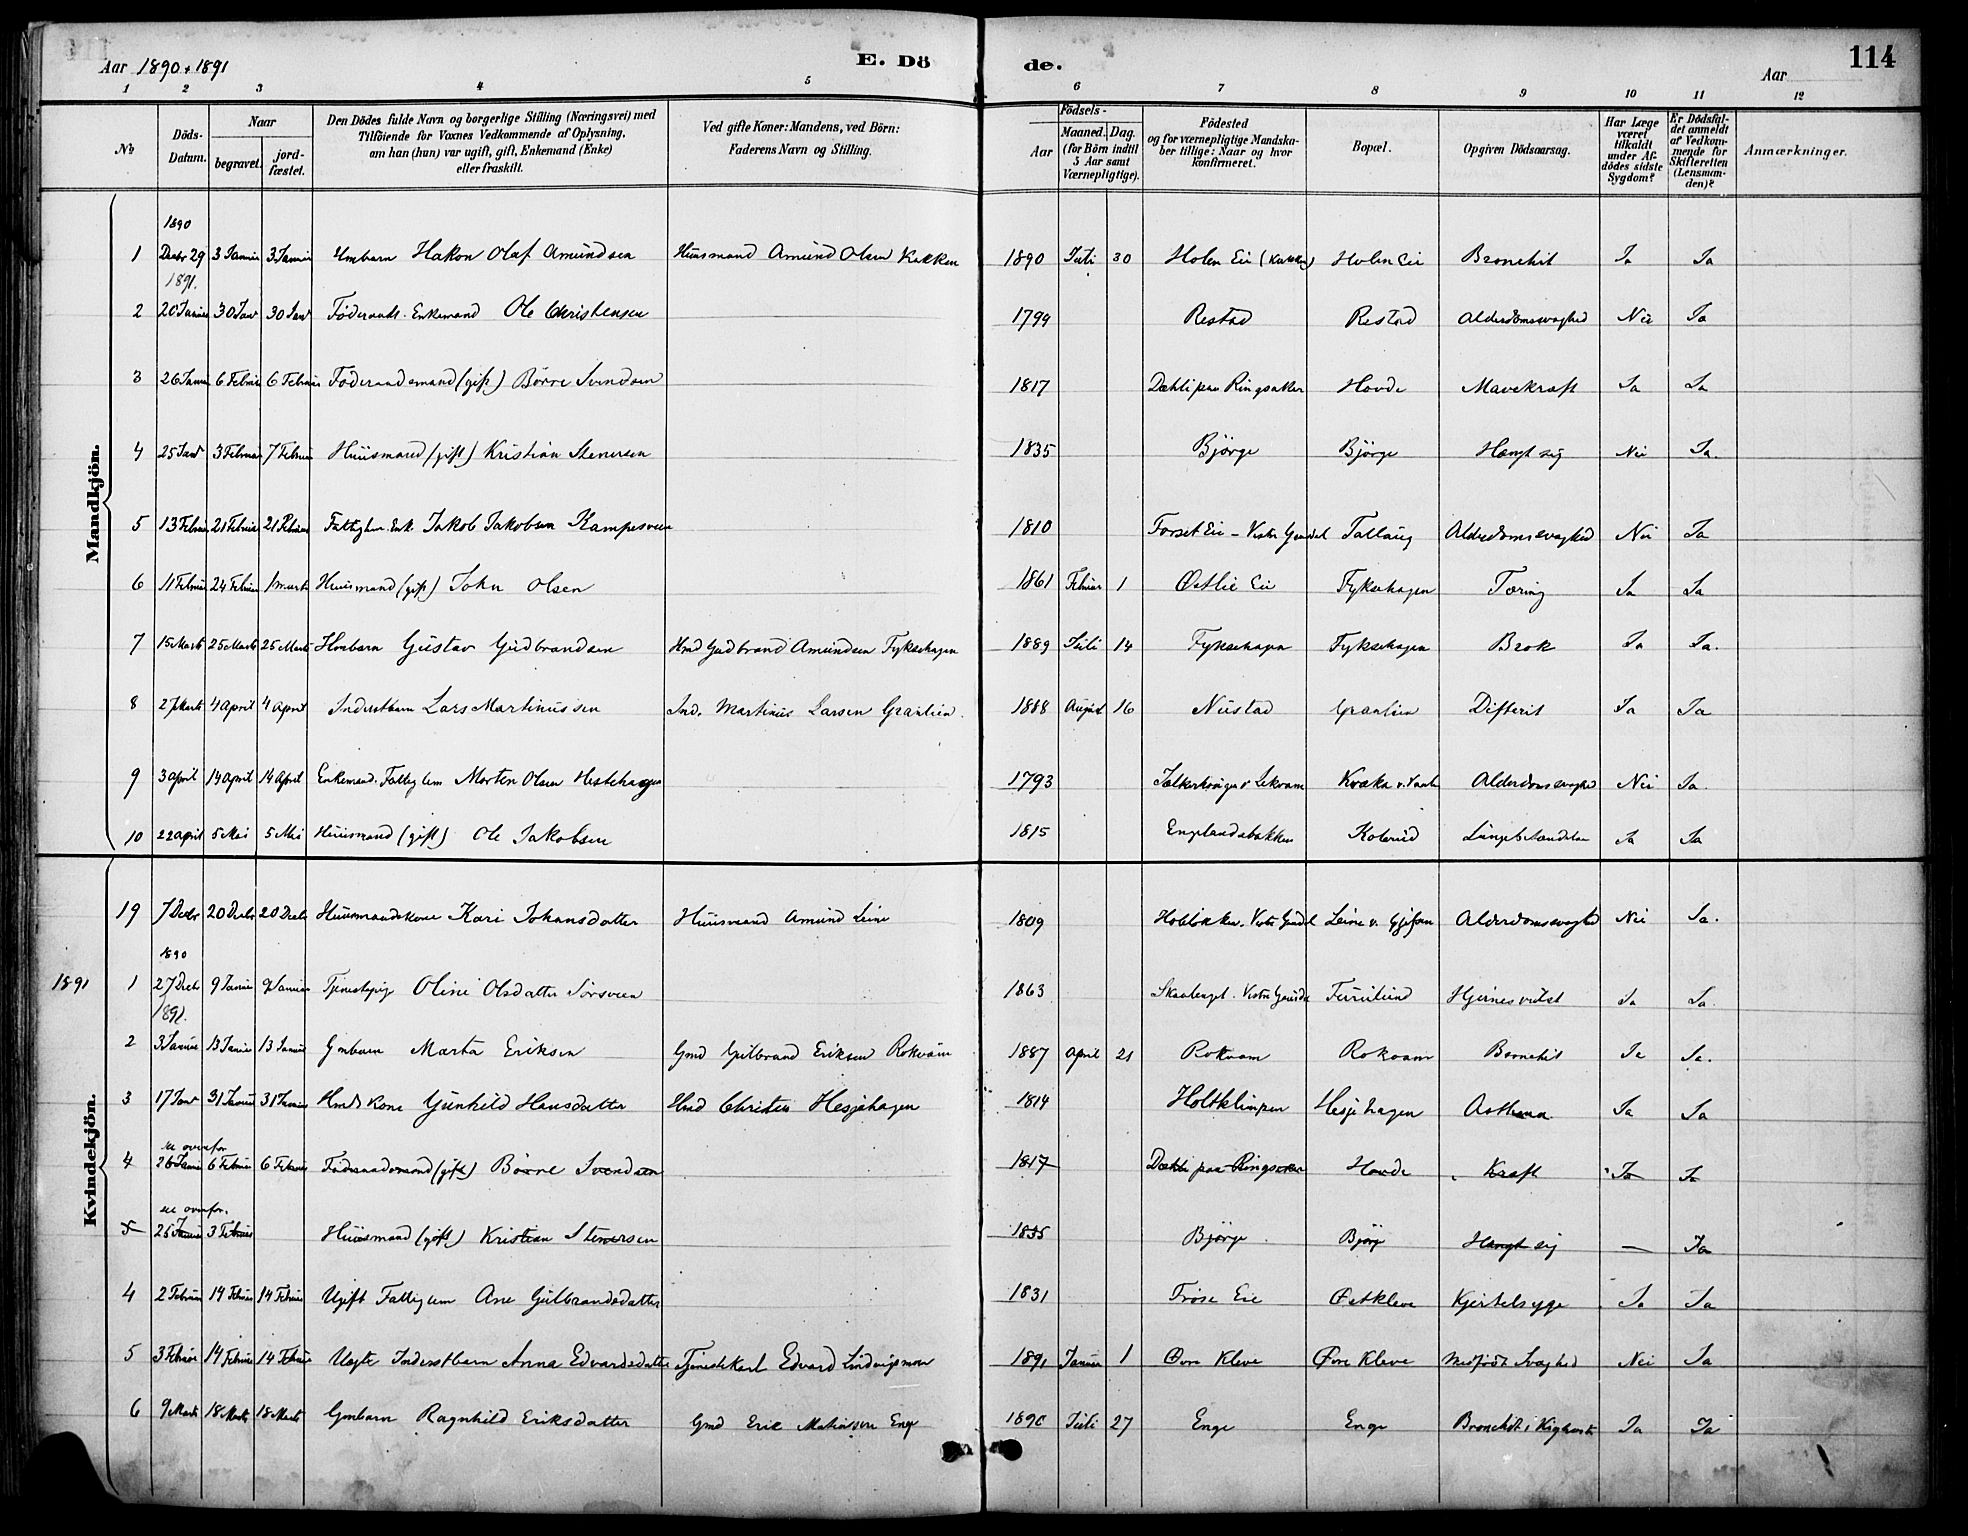 Aar 1890 + 1891
E. Dö
de.
Aar
114
1 2 3 4 5 6 7 8 9 10 11 12
No
Döds-Datum.
Naar
begravet.
jord-fæstet.
Den Dödes fulde Navn og borgerlige Stilling (Næringsvei) med
Tilföiende for Voxnes Vedkommende af Oplysning,
om han (hun) var ugift, gift, Enkemand (Enke)
eller fraskilt.
Ved gifte Koner: Mandens, ved Börn:
Faderens Navn og Stilling.
Födsels-
Aar
Maaned. Dag.
(for Börn indtil
5 Aar samt
Værnepligtige).
Födested
og for værnepligtige Mandska-
ber tillige: Naar og hvor
konfirmeret.
Bopæl.
Opgiven Dödsaarsag.
Har Læge
været
tilkaldt
under Af-
dödes sidste
Sygdom?
Er Dödsfal-
det anmeldt
af Vedkom-
mende for
Skifteretten
(Lensman-
den)?
Anmærkninger.
Mandkjön.
1890
1 Decbr 29 3 Januar 3 Januar Hmbarn Hakon Olaf Amundsen Huusmand Amund Olsen Kakken 1890 Juli 30 Holen Eie (Kakken) Holen Eie Bronchit Ja Ja
1891.
2 20 Januar 30 Janr 30 Janr Föderaads. Enkemand Ole Christensen 1794 Restad Restad Alderdomssvaghed Nei Ja
3 26 Januar 6 Februar 6 Februar Föderaadsmand (gift) Börre Svendsen 1817 Dæhli paa Ringsaker Hovde Mavekræft Ja Ja
4 25 Janr 3 Februar 7 Februar Huusmand (gift) Kristian Stenersen 1835 Bjørge Bjørge Hængt sig Nei Ja.
5 13 Februar 21 Februar 21 Februar Fattiglem. Enk. Jakob Jakobsen Kampesveen 1810 Forset Eie - Vestre Gausdal Tallaug Alderdomssvaghed Nei Ja
6 11 Februar 24 Februar 1 Marts Huusmand (gift) John Olsen 1861 Februar 1 Østlie Eie Fyksehagen Tæring Ja Ja
7 15 Marts 25 Marts 25 Marts Hmbarn Gustav Gudbrandsen Hmd Gudbrand Amundsen Fyksehagen 1889 Juli 14 Fyksehagen Fyksehagen Brok Ja Ja.
8 27 Marts 4 April 4 April Inderstbarn Lars Martinussen Ind. Martinus Larsen Granlien. 1888 August 16 Nustad Granlien Difterit Ja Ja
9 3 April 14 April 14 April Enkemand. Fattiglem Morten Olsen Hestehagen 1793 Alderdomssvaghed Nei Ja.
10 22 April 5 Mai 5 Mai Huusmand (gift) Ole Jakobsen 1815 Englandsbakken Kolerud Lungebetændelse Ja Ja
Kvindekjön.
19 7 Decbr 20 Decbr 20 Decbr Huusmandskone Kari Johansdatter Huusmand Amund Leine 1809 Vestre Gausdal Leine Alderdomssvaghed Nei Ja.
1890
1891 1 27 Decbr 9 Januar 9 Januar Tjenestepige Oline Olsdatter Sørsveen 1863 Vestre Gausdal Furulund Hjernesvulst Ja Ja.
1891.
2 3 Januar 13 Januar 13 Januar Gmbarn Marta Eriksen Gmd Gulbrand Eriksen Rokvam 1887 April 21 Rokvam Rokvam Bronchit Ja Ja.
3 17 Janr 31 Januar 31 Januar Hmds kone Gunhild Hansdatter Hmd Christen Hesjehagen 1814 Holtklimpen Hesjehagen Asthma Ja Ja
se ovenfor
4 26 Januar 6 Februar 6 Februar Föderaadsmand (gift) Börre Svendsen 1817 Dæhli paa Ringsaker Hovde Kræft Ja Ja
se ovenfor.
5 25 Januar 3 Februar Huusmand (gift) Kristian Stenersen 1835 Bjørge Bjørge Hængt sig — Ja
4 2 Februar 14 Februar 14 Februar Ugift Fattiglem Ane Gulbrandsdatter 1831 Frøse Eie Østkleve Kjertelsyge Ja Ja
5 3 Februar 14 Februar 14 Februar Uægte Inderstbarn Anna Edvardsdatter Tjenestekarl Edvard Lindvigsmoen 1891 Januar 1 Øvre Kleve Øvre Kleve Medfødt Svaghed Nei Ja
6 9 Marts 18 Marts 18 Marts Gmbarn Ragnhild Eriksdatter Gmd Eric Mathissen Enge 1890 Juli 27 Enge Enge Bronchit, Kighoste Ja Ja